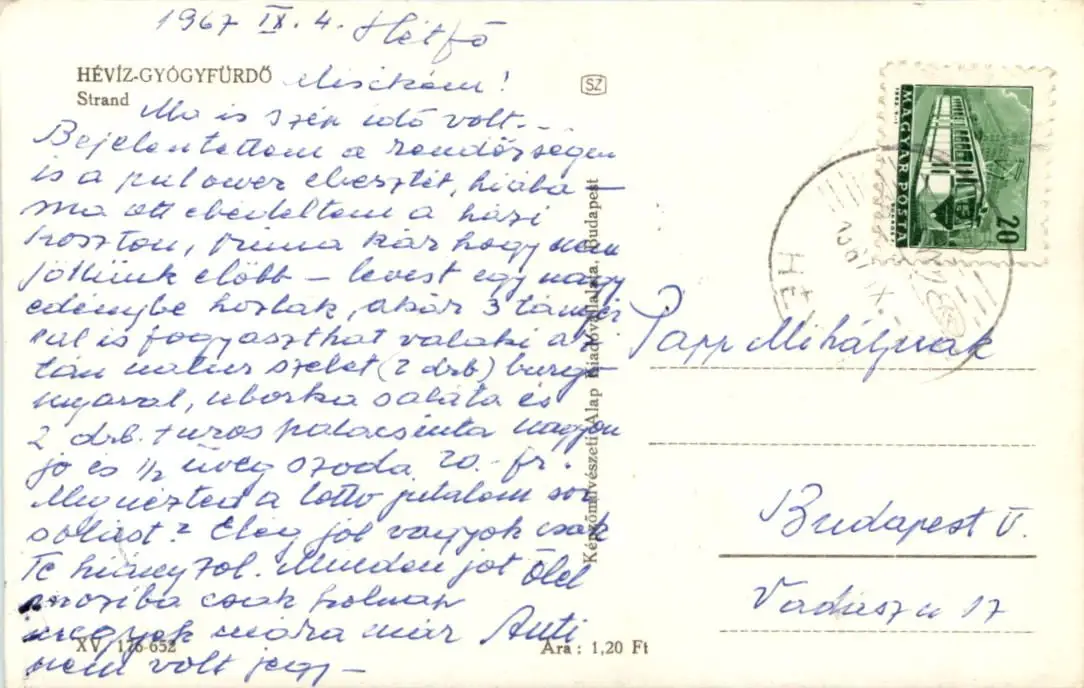 1967 IX. 4. Hétfő
HÉVÍZ-GYÓGYFÜRDŐ
Strand
Miskám!
Ma is szép idő volt. . .
Bejelentettem a rendőrségen
is a pulower elvesztét, hiába –
ma ott ebédeltem a házi
koszton, príma kár hogy nem
jöttünk előbb – levest egy nagy
edénybe hoztak, akár 3 tányér
ral is fogyaszthat valaki az
tán natur szelet (2 drb) burgo
nyával, uborka saláta és
2 drb. túros palacsinta nagyon
jó és 1/2 üveg szoda 20.- fr.
Megnézted a lotto jutalom sor
solást? Elég jól vagyok csak
Te hiányzol. Minden jót Ölel
moziba csak holnap
megyek mára már Anti
nem volt jegy –
XV, 176-652
Ára : 1,20 Ft
SZ
Képzőművészeti Alap Kiadóvállalata, Budapest
MAGYAR POSTA
20
HÉ
Papp Mihálynak
Budapest V.
Vadász u 17